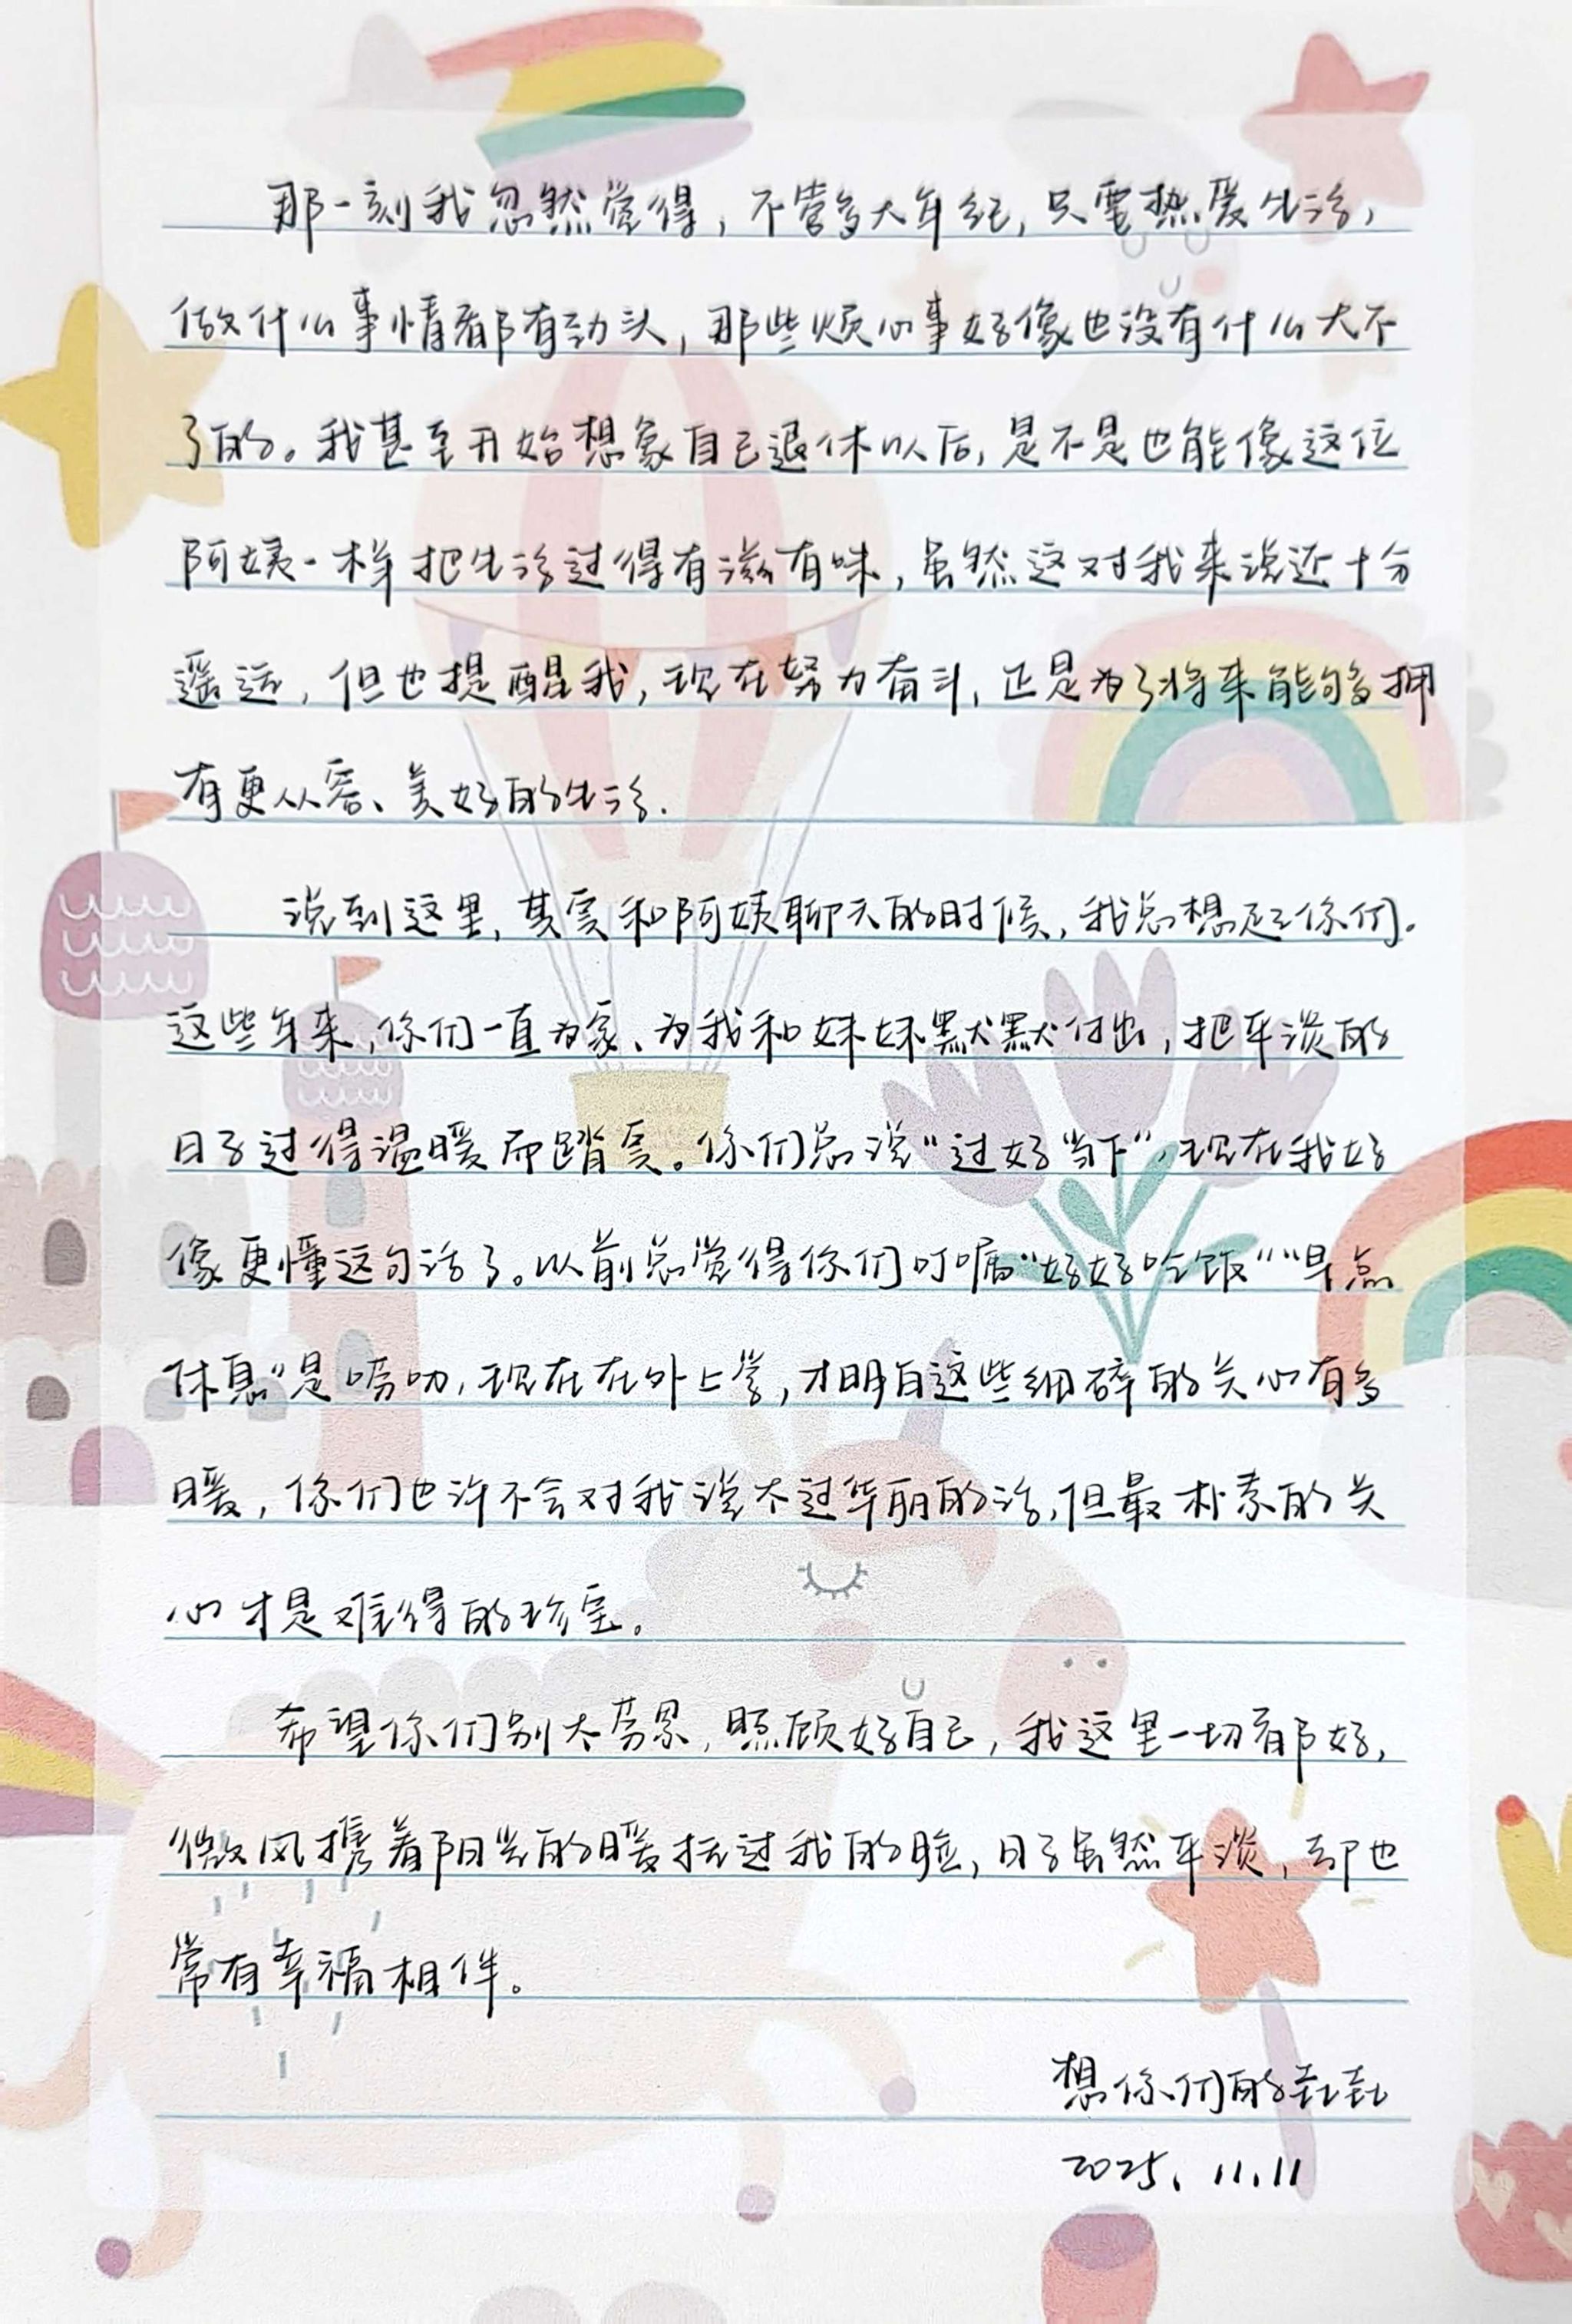 那一刻我忽然觉得，不管多大年纪，只要热爱生活，
做什么事情都有劲头，那些烦心事好像也没有什么大不
了的。我甚至开始想象自己退休以后，是不是也能像这位
阿姨一样把生活过得有滋有味，虽然这对我来说还十分
遥远，但也提醒我，现在努力奋斗，正是为了将来能够拥
有更从容、美好的生活.
说到这里，其实和阿姨聊天的时候，我总想起你们.
这些年来，你们一直为家、为我和妹妹默默付出，把平淡的
日子过得温暖而踏实。你们总说“过好当下”，现在我好
像更懂这句话了。以前总觉得你们叮嘱“好好吃饭”“早点
休息”是唠叨，现在在外上学，才明白这些细碎的关心有多
暖，你们也许不会对我说太过华丽的话，但最朴素的关
心才是难得的珍宝。
希望你们别太劳累，照顾好自己，我这里一切都好，
微风携着阳光的暖抚过我的脸，日子虽然平淡，却也
常有幸福相伴。
想你们的
2025、11.11